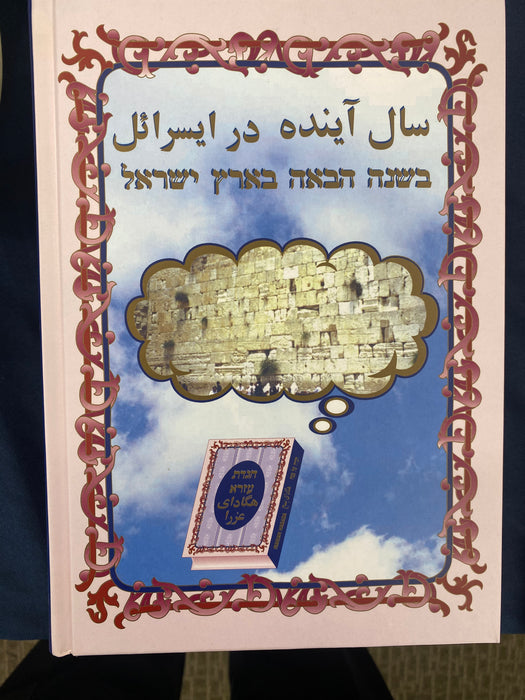 سال آینده در ایسرائل
בשנה הבאה בארץ ישראל
הגדת
עזרא
هگادای
عزرا